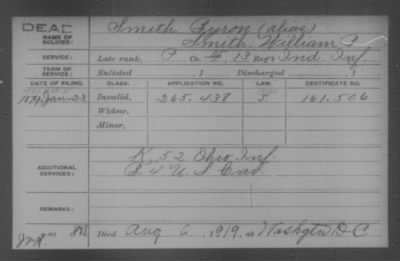 DEAD
NAME OF SOLDIER: Smith Byron (alias)
Smith, William B
SERVICE: Late rank, P Co. F, 13 Reg't Ind. Inf.
TERM OF SERVICE: Enlisted , 1 Discharged , 1
DATE OF FILING. CLASS. APPLICATION NO. LAW. CERTIFICATE NO.
1879 Jan. 23 Invalid, 265.438 161.506
Widow,
Minor,
ADDITIONAL SERVICES: K, 52 Ohio Inf.
B. 4 U. S. Cav.
REMARKS:
Died Aug 6, 1919, at Washgtn D C